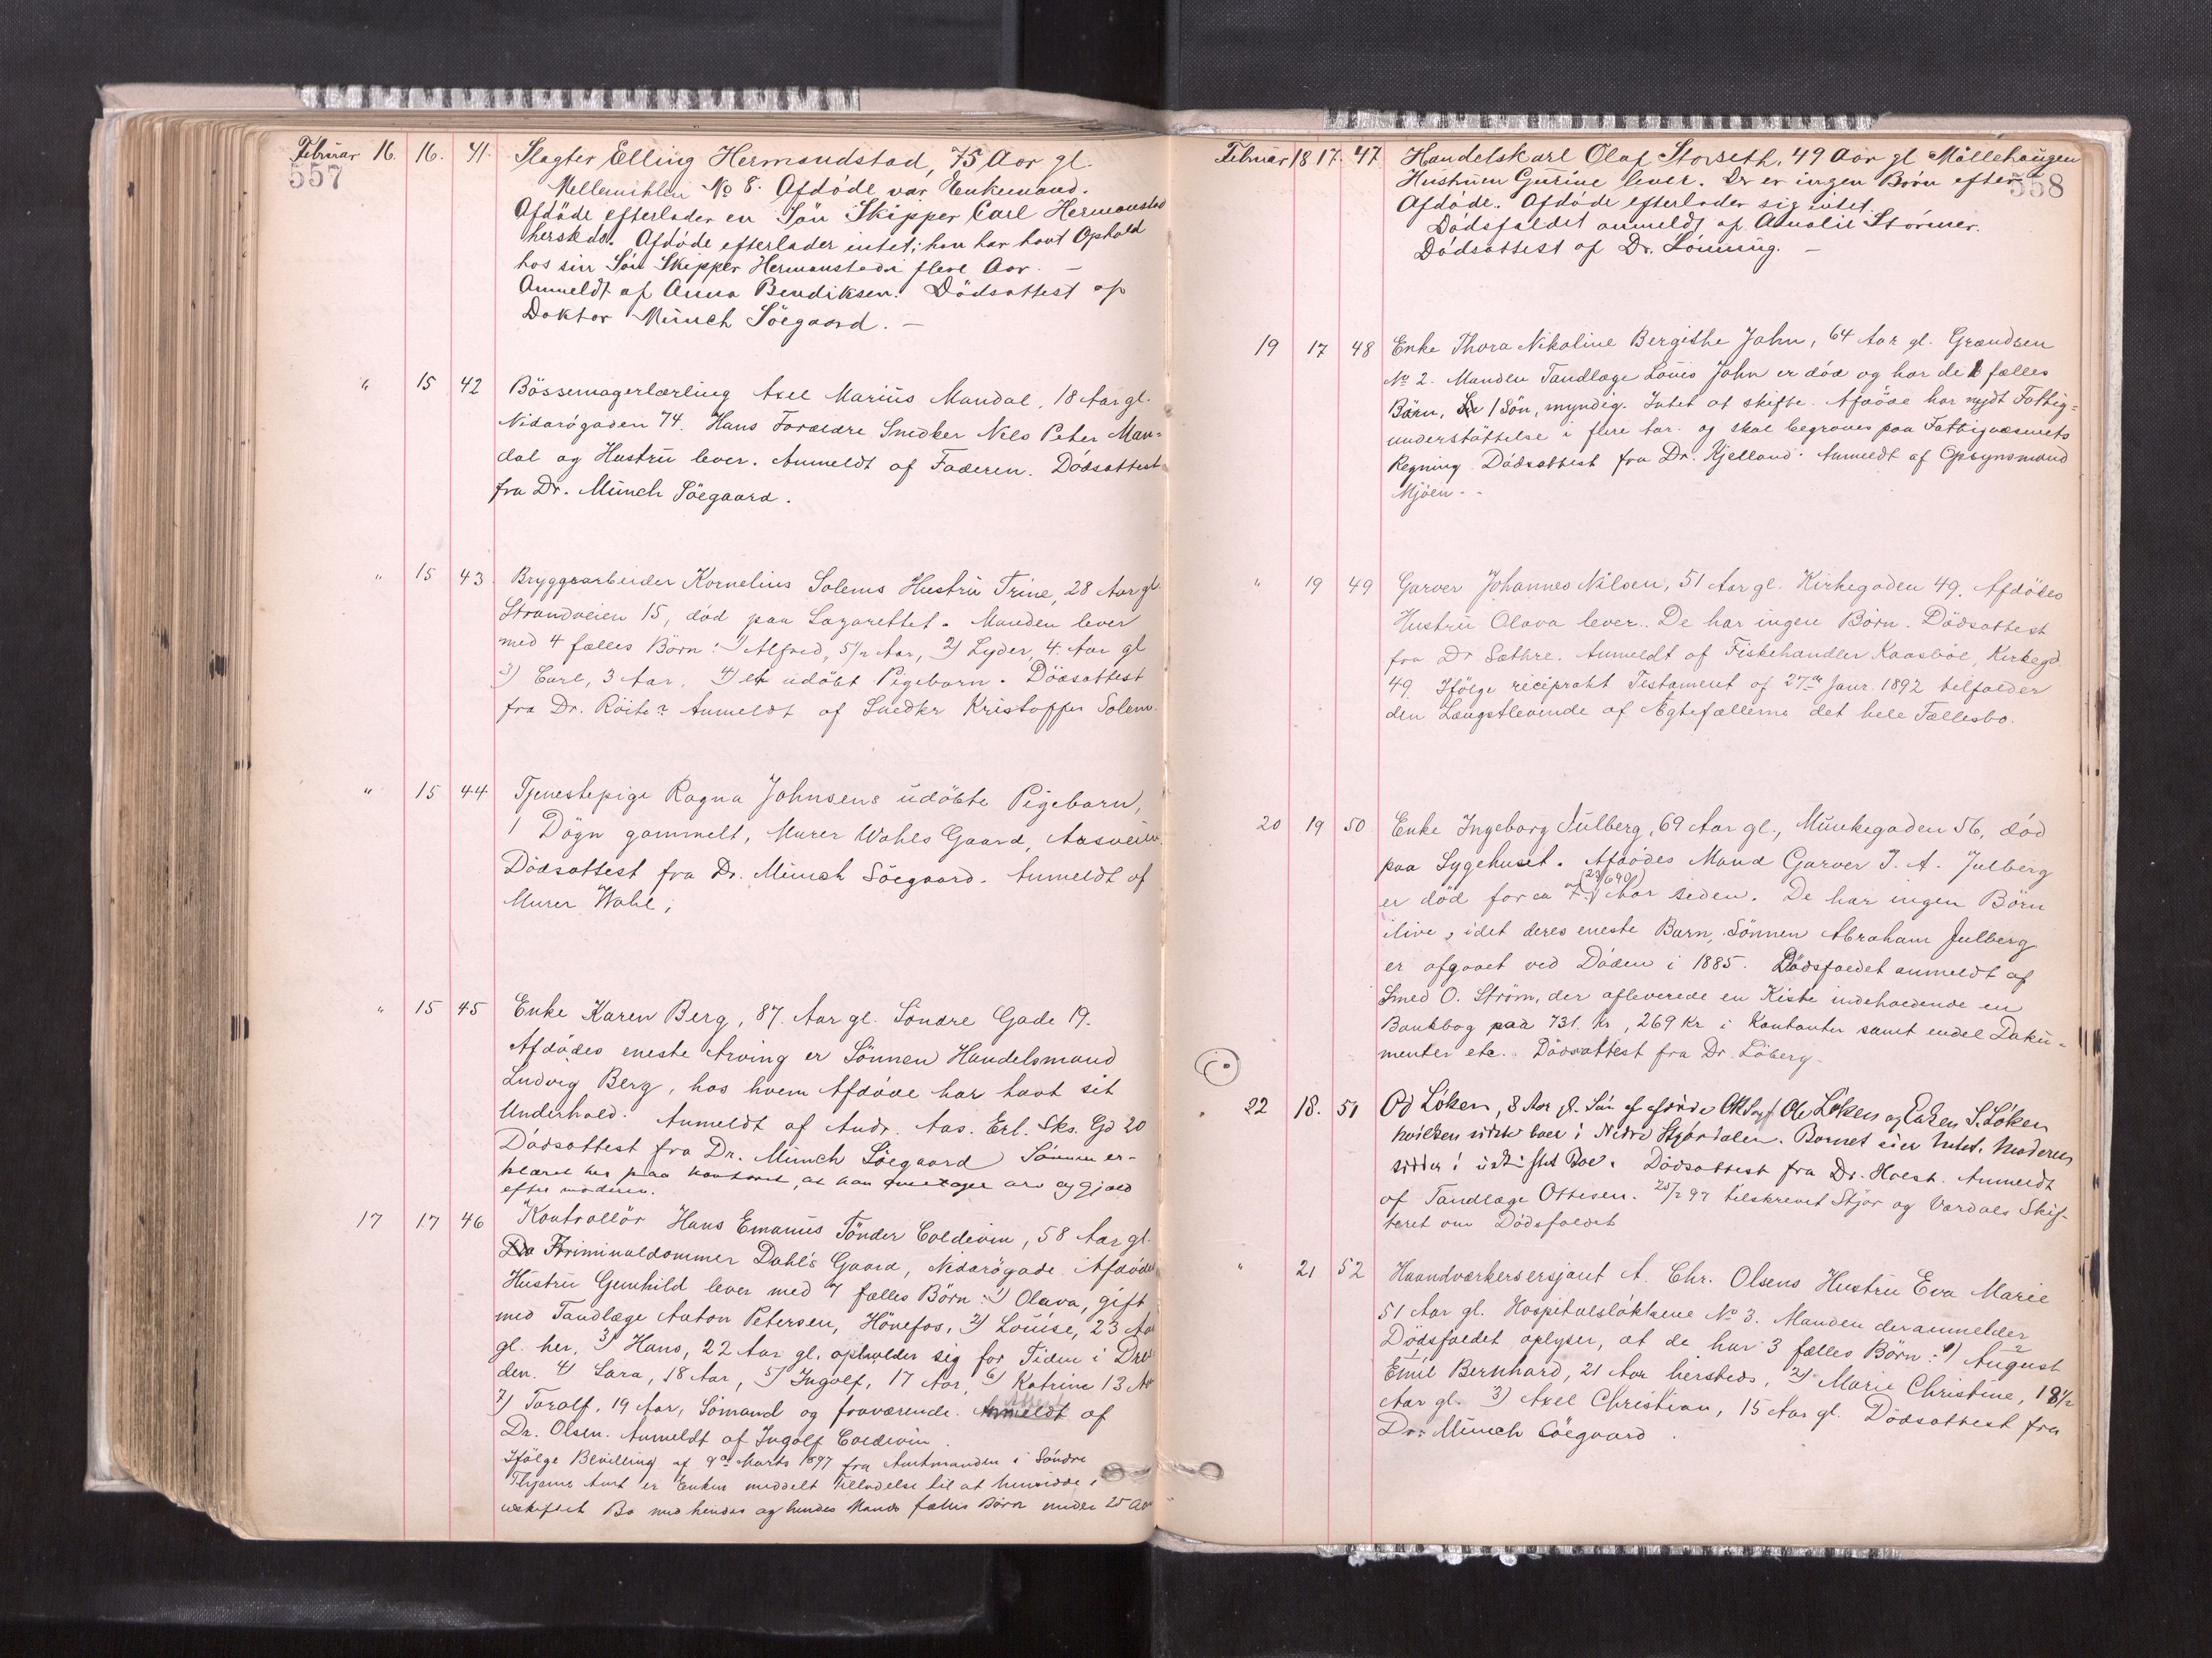 Februar 16. 16. 41. Slagter Elling Hermandstad, 75 Aar gl.
557
Mellemihlen No 8. Afdöde var Enkemand.
Afdöde efterlader en Sön Skipper Carl Hermanstad
herskds. Afdöde efterlader intet; han har havt Ophold
hos sin Sön Skipper Hermanstad i flere Aar. —
Anmeldt af Anna Bendiksen. Dödsattest af
Doktor Münch Söegaard. —
" 15 42 Bössemagerlærling Axel Marius Mandal, 18 Aar gl.
Nidarógaden 74. Hans Forældre Snedker Nils Peter Man=
dal og Hustru lever. Anmeldt af Faderen. Dödsattest
fra Dr. Münch Söegaard.
" 15 43. Bryggearbeider Kornelius Solems Hustru Trine, 28 Aar gl.
Strandveien 15, död paa Lazarettet. Manden lever
med 4 fælles Börn: 1) Alfred, 5 1/2 Aar, 2) Lyder, 4. Aar gl
3) Carl, 3 Aar. 4) et udöbt Pigebarn. Dödsattest
fra Dr. Anmeldt af Snedker Kristoffer Solem.
" 15 44 Tjenestepige Ragna Johnsens udöbte Pigebarn,
1 Dögn gammelt, Murer Wahls Gaard, Aasveien.
Dödsattest fra Dr. Münch Söegaard. Anmeldt af
Murer Wahl;
" 15 45 Enke Karen Berg, 87. Aar gl. Söndre Gade 19.
Afdödes eneste Arving er Sönnen Handelsmand
Ludvig Berg, hos hvem Afdöde har havt sit
Underhold. Anmeldt af Andr. Aas. Erl. Sks. Gd 20
Dödsattest fra Dr. Münch Söegaard Sönnen er-
klæret her paa kontoret, at han overtager arv og gjæld
efter moderen.
17 17 46 Kontrollör Hans Emanus Tönder Coldevin, 58 Aar gl.
Da Kriminaldommer Dahl's Gaard, Nidarögade. Afdödes
Hustru Gunhild lever med 7 fælles Börn: 1) Olava, gift
med Tandlæge Anton Petersen, Hönefos, 2) Louise, 23 Aar
gl. her, 3) Hans, 22 Aar gl. opholder sig for Tiden i Dres
den. 4) Lara, 18 Aar, 5) Ingolf, 17 Aar, 6) Katrine 13 Aar
7) Toralf, 19 Aar, Sömand og fraværende. Anmeldt Attest af
Dr. Olsen. Anmeldt af Ingolf Coldevin.
Ifölge Bevilling af 9de Marts 1897 fra Amtmanden i Söndre
Thjems Amt er Enken meddelt Tilladelse til at hensidde i
uskiftet Bo med hendes og hendes Mands fælles Börn under 25 Aar
Februar 18 17. 47. Handelskarl Olaf Storseth, 49 Aar gl Möllehaugen
558
Hustruen Gurine lever. Der er ingen Börn efter
Afdöde. Afdöde efterlader sig intet.
Dödsfaldet anmeldt af Amalie Störmer.
Dödsattest af Dr. Lönning. —
19 17 48 Enke Thora Nikoline Bergithe Jahn, 64 Aar gl. Grændsen
No 2. Manden Tandlæge Louis Jahn er död og har de 1 fælles
Barn, 1 Sön, myndig. Intet at skifte. Afdöde har nydt Fattig=
understöttelse i flere Aar. og skal begraves paa Fattigvæsenets
Regning. Dödsattest fra Dr. Kjelland. Anmeldt af Opsynsmand
Mjöen. -
" 19 49 Garver Johannes Nilsen, 51 Aar gl. Kirkegaden 49. Afdödes
Hustru Olava lever.. De har ingen Börn. Dödsattest
fra Dr Sæthre. Anmeldt af Fiskehandler Kaasböl, Kirkegd.
49. Ifölge reciprokt Testament af 27de Janr. 1892 tilfalder
den Længstlevende af Ægtefællerne det hele Fællesbo.
20 19 50 Enke Ingeborg Julberg, 69 Aar gl., Munkegaden 56, död
paa Sygehuset. Afdödes Mand Garver J. A. Julberg
(23/6 90)
er död for ca 7 Aar siden. De har ingen Börn
ilive, idet deres eneste Barn, Sönnen Abraham Julberg
er afgaaet ved Döden i 1885. Dödsfaldet anmeldt af
Smed O. Ström, der afleverede en Kiste indeholdende en
Bankbog paa 731. kr, 269 kr i Kontanter samt endel Doku=
menter etc. Dödsattest fra Dr. Löberg.
22 18. 51 Od Löken, 8 Aar gl. Sön af afdöde Ole Löken og Enken S. Löken
hvilken sidste boer i Nedre Stjördalen. Barnet eier Intet. Moderen
sidder i uskiftet Boe. Dödsattest fra Dr. Holst. Anmeldt
af Tandlæge Ottesen. 25/2 97 tilskrevet Stjör og Værdals Skif-
teret om Dödsfaldet
" 21 52 Haandværkersersjant A. Chr. Olsens Hustru Eva Marie
51 Aar gl. Hospitalslökkene No 3. Manden der anmelder
Dödsfaldet oplyser, at de har 3 fælles Börn: 1) August
Emil Bernhard, 21 Aar hersteds, 2) Marie Christine, 18 1/2
Aar gl. 3) Axel Christian, 15 Aar gl. Dödsattest fra
Dr. Münch Söegaard.